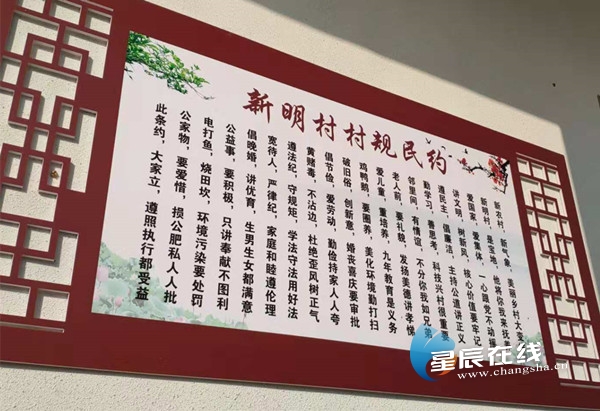 新明村村规民约
新农村，新气象，美丽乡村大变
新明村，是宝地，他将你我来抚
爱国家，爱集体，一心跟党不动摇
讲文明，树新风，核心价值要牢记
遵民主，倡廉洁，主持公道讲正义
勤学习，善思考，科技兴村很重要
邻里间，有情谊，不分你我如兄弟
老人前，要礼貌，发扬美德讲孝悌
爱儿童，重培养，九年教育是义务
鸡鸭鹅，要圈养，美化环境勤打扫
破旧俗，创新意，婚丧喜庆要审批
倡节俭，爱劳动，勤俭持家人人夸
黄赌毒，不沾边，杜绝歪风树正气
遵法纪，守规矩，学法守法用好法
宽待人，严律纪，家庭和睦遵伦理
倡晚婚，讲优育，生男生女都满意
公益事，要积极，只讲奉献不图利
电打鱼，烧田坎，环境污染要处罚
公家物，要爱惜，损公肥私人人批
此条约，大家立，遵照执行都受益
星辰在线
www.changsha.cn